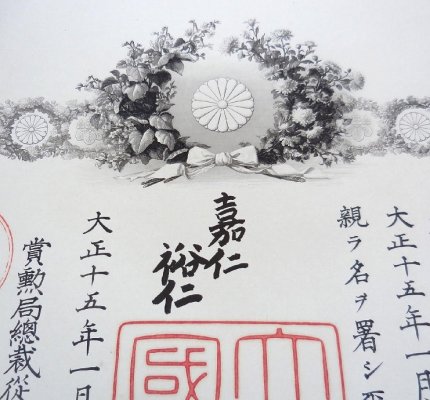 大正十五年一月
親ラ名ヲ署シ
嘉仁
裕仁
大
國
大正十五年一月
賞勲局總裁従